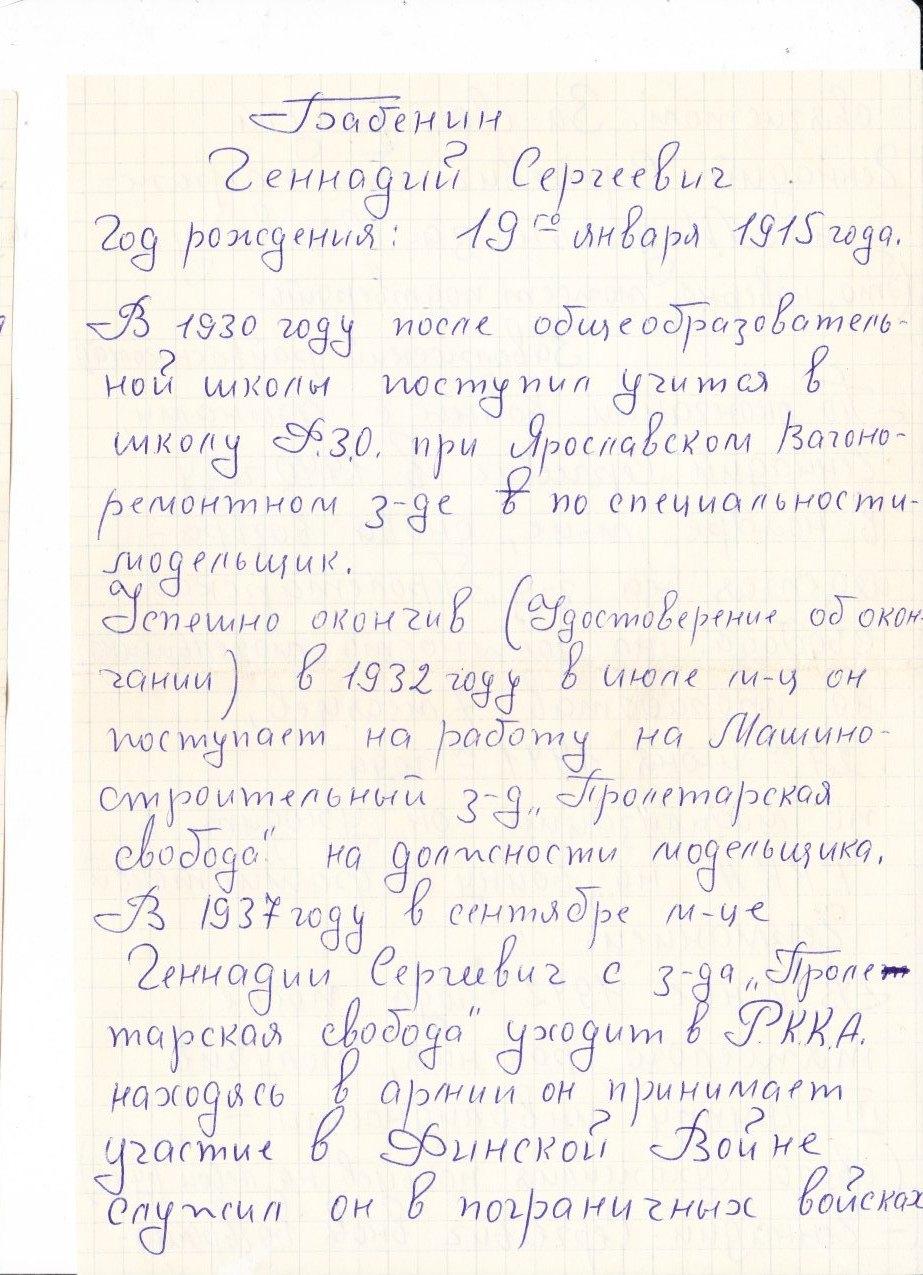 Бабенин
Геннадий Сергеевич
Год рождения: 19го января 1915 года.
В 1930 году после общеобразователь-
ной школы поступил учится в
школу Ф.З.О. при Ярославском Вагоно-
ремонтном з-де в по специальности-
модельщик.
Успешно окончив (Удостоверение об окон-
чании) в 1932 году в июле м-ц он
поступает на работу на Машино-
строительный з-д „Пролетарская
свобода" на должности модельщика.
В 1937 году в сентябре м-це
Геннадии Сергиевич с з-да „Проле
тарская свобода" уходит в Р.К.К.А.
находясь в армии он принимает
участие в Финской Войне
служил он в пограничных войсках